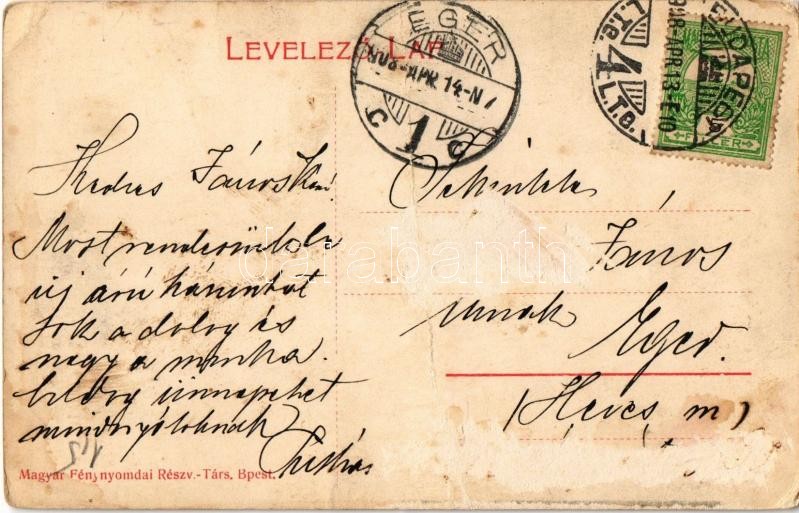 LEVELEZŐ-LAP
EGER
908 APR. 14-N7
C 1 C
BUDAPEST
908 APR 13-E 10
4
L.T.C.
FILLÉR
Kedves Jánoskám!
Most rendezzük be
új árú házunkat
sok a dolog és
nagy a munka.
boldog ünnepeket
mindnyájatoknak
János
urnak
Eger.
(Heves m)
darabanth
Magyar Fénynyomdai Részv.-Társ. Bpest.